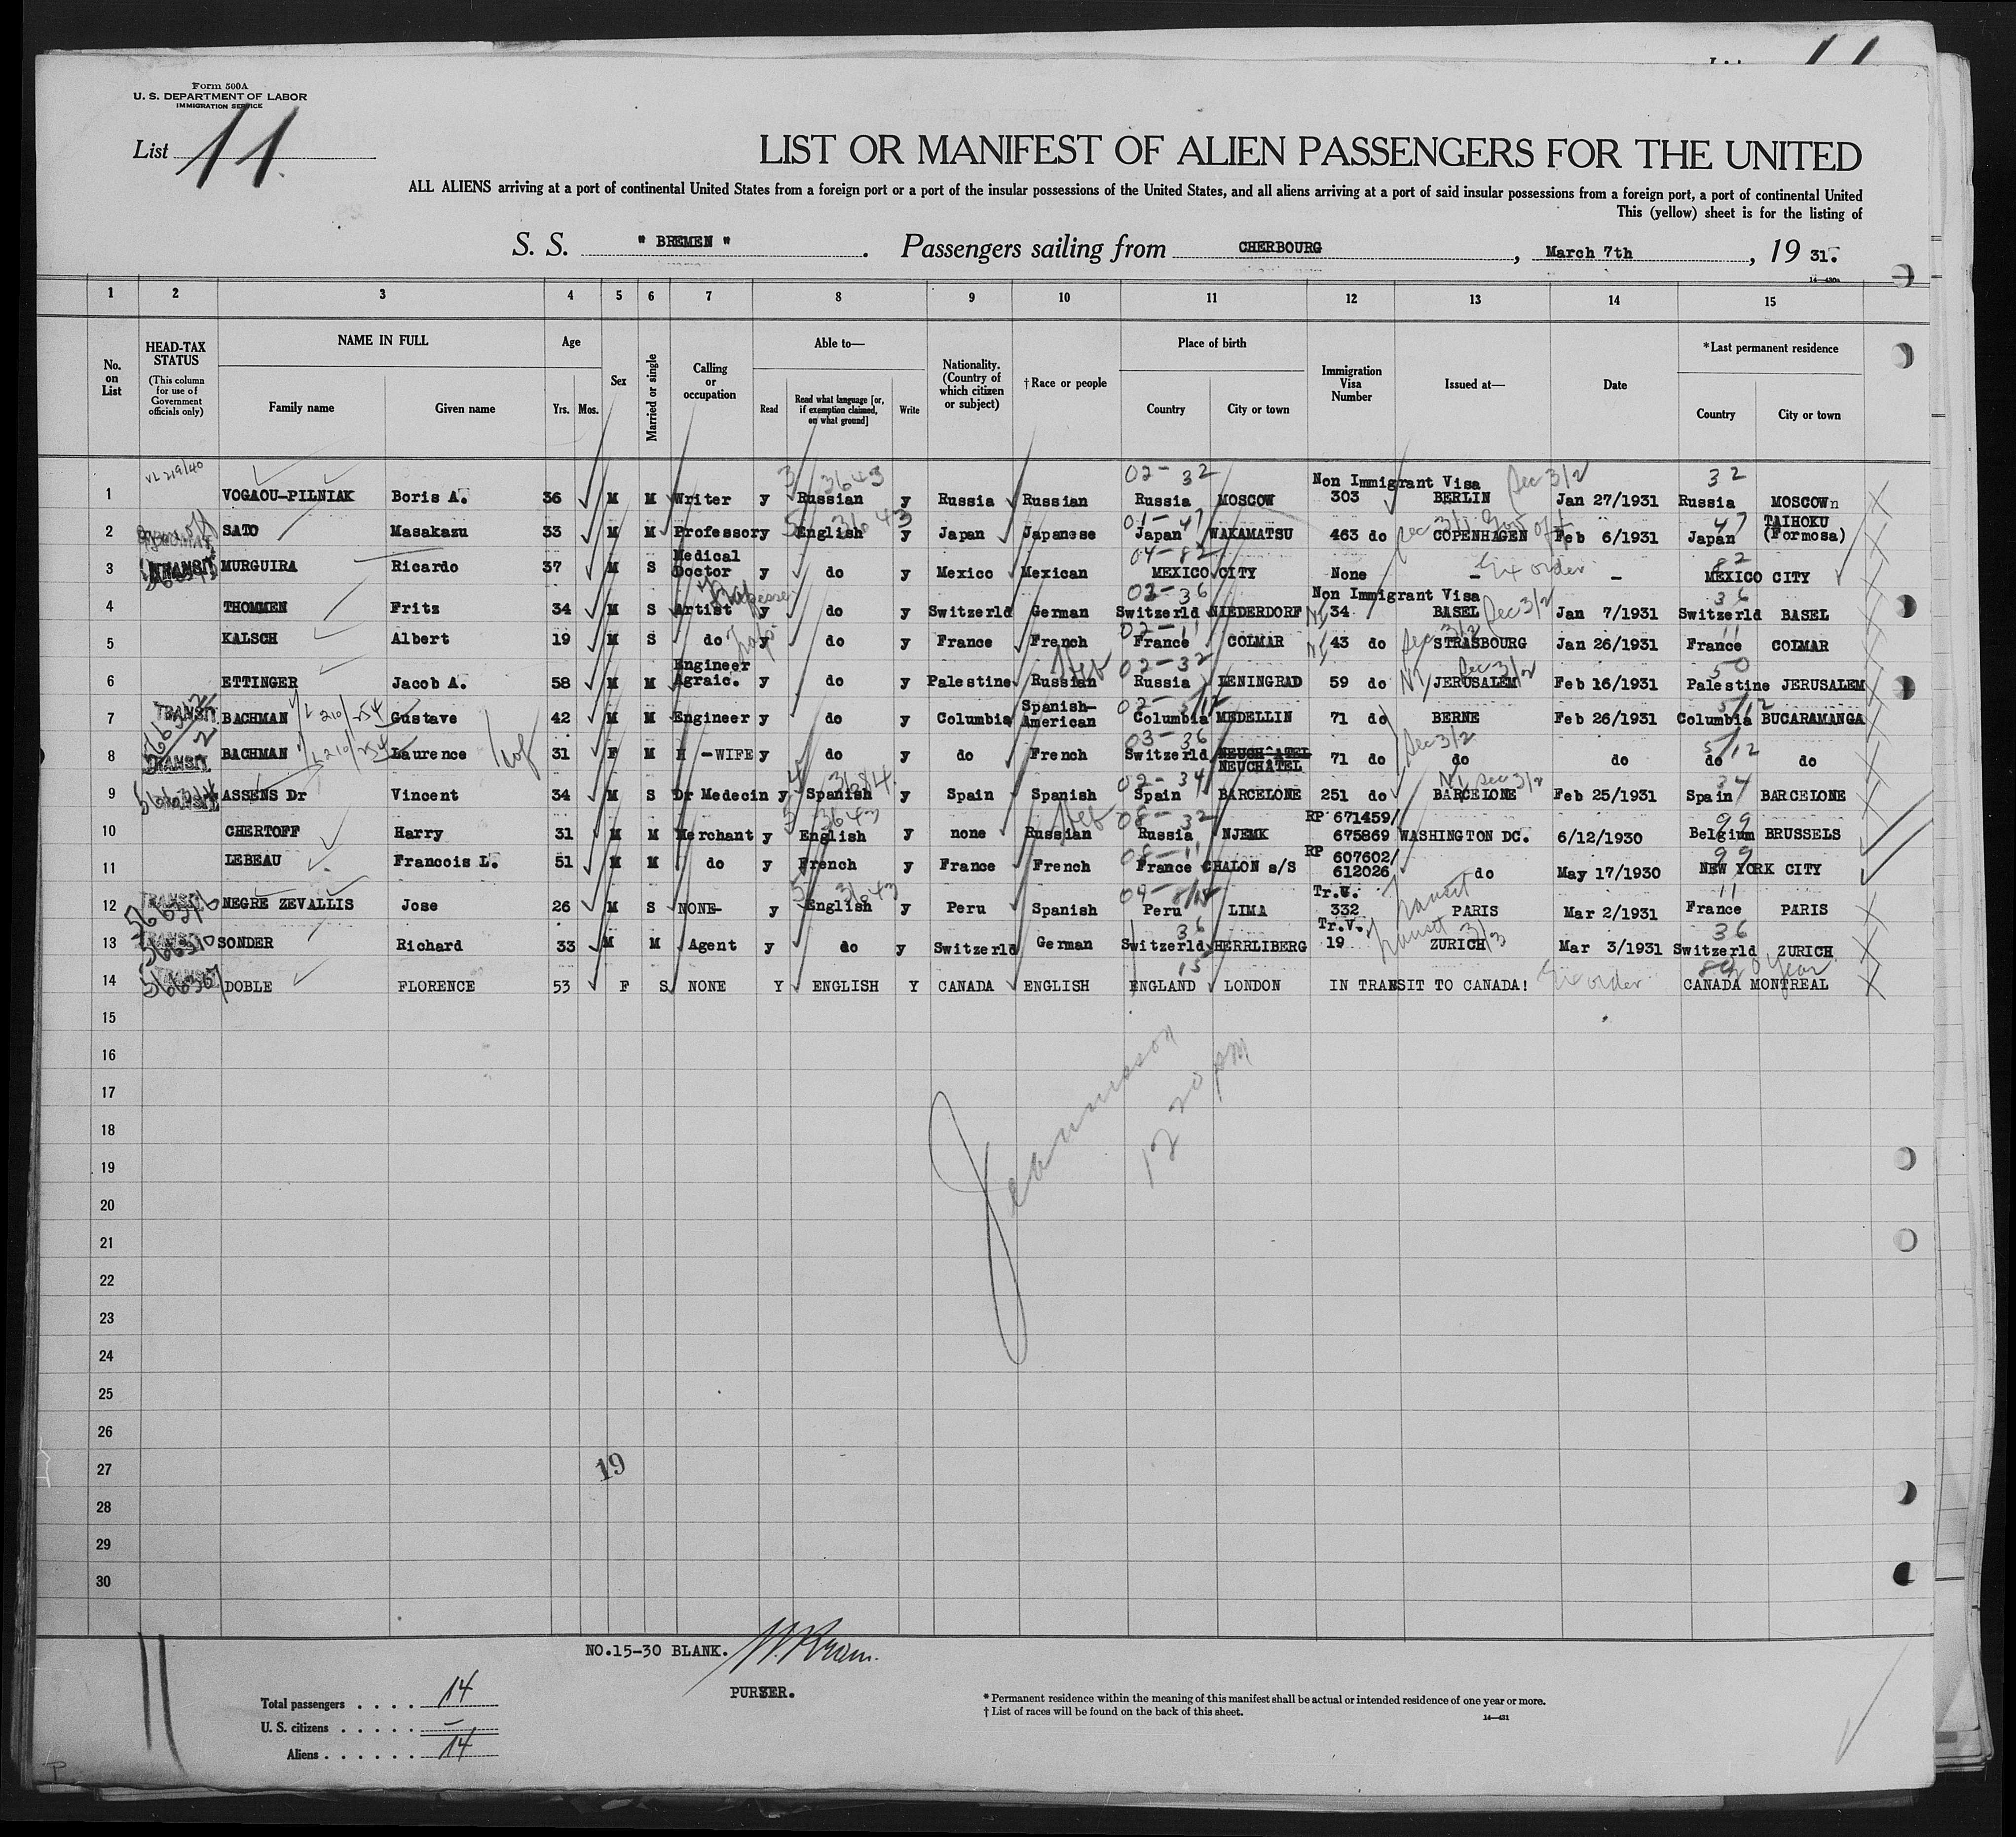 Form 500A
U. S. DEPARTMENT OF LABOR
IMMIGRATION SERVICE
List 11
LIST OR MANIFEST OF ALIEN PASSENGERS FOR THE UNITED
ALL ALIENS arriving at a port of continental United States from a foreign port or a port of the insular possessions of the United States, and all aliens arriving at a port of said insular possessions from a foreign port, a port of continental United
This (yellow) sheet is for the listing of
S. S. " BREMEN " . Passengers sailing from CHERBOURG , March 7th , 19 31.
1 2 3 4 5 6 7 8 9 10 11 12 13 14 15
No. on List
HEAD-TAX STATUS
(This column for use of Government officials only)
NAME IN FULL
Family name Given name
Age
Yrs. Mos.
Sex
Married or single
Calling or occupation
Able to—
Read
Read what language [or, if exemption claimed, on what ground]
Write
Nationality. (Country of which citizen or subject)
† Race or people
Place of birth
Country City or town
Immigration Visa Number
Issued at—
Date
*Last permanent residence
Country City or town
02- 32 Non Immigrant Visa Sec 3/2 32
1 VOGAOU-PILNIAK Boris A. 36 M M Writer y Russian y Russia Russian Russia MOSCOW 303 BERLIN Jan 27/1931 Russia MOSCOW
2 SATO Masakazu 33 M M Professor y English y Japan Japanese Japan WAKAMATSU 463 do COPENHAGEN Feb 6/1931 Japan TAIHOKU (Formosa)
3 TRANSIT MURGUIRA Ricardo 37 M S Medical Doctor y do y Mexico Mexican MEXICO CITY None - Ex order - MEXICO CITY
Non Immigrant Visa
4 THOMMEN Fritz 34 M S Artist y do y Switzerld German Switzerld NIEDERDORF 34 BASEL Sec 3/2 Jan 7/1931 Switzerld BASEL
5 KALSCH Albert 19 M S do y do y France French France COLMAR 43 do STRASBOURG Jan 26/1931 France COLMAR
6 ETTINGER Jacob A. 58 M M Engineer Agraic. y do y Palestine Russian Heb Russia LENINGRAD 59 do JERUSALEM Feb 16/1931 Palestine JERUSALEM
7 TRANSIT BACHMAN Gustave 42 M M Engineer y do y Columbia Spanish-American Columbia MEDELLIN 71 do BERNE Feb 26/1931 Columbia BUCARAMANGA
8 TRANSIT BACHMAN Laurence 31 F M H -WIFE y do y do French Switzerld NEUCHATEL 71 do do do do do
9 ASSENS Dr Vincent 34 M S Dr Medecin y Spanish y Spain Spanish Spain BARCELONE 251 do BARCELONE Feb 25/1931 Spain BARCELONE
10 CHERTOFF Harry 31 M M Merchant y English y none Russian Heb Russia NJEMK RP 671459/ 675869 WASHINGTON DC. 6/12/1930 Belgium BRUSSELS
11 LEBEAU Francois L. 51 M M do y French y France French France CHALON s/S RP 607602/ 612026 do May 17/1930 NEW YORK CITY
12 TRANSIT NEGRE ZEVALLIS Jose 26 M S NONE- y English y Peru Spanish Peru LIMA Tr.V. 332 Transit PARIS Mar 2/1931 France PARIS
13 SONDER Richard 33 M M Agent y do y Switzerld German Switzerld HERRLIBERG Tr.V. 19 Transit ZURICH Mar 3/1931 Switzerld ZURICH
14 TRANSIT DOBLE FLORENCE 53 F S NONE Y ENGLISH Y CANADA ENGLISH ENGLAND LONDON IN TRANSIT TO CANADA! Ex order CANADA MONTREAL
15
16
17
18
19
20
21
22
23
24
25
26
27
28
29
30
12 20 pm
19
NO.15-30 BLANK.
PURSER.
Total passengers . . . . 14
U. S. citizens . . . . . -
Aliens . . . . . . 14
* Permanent residence within the meaning of this manifest shall be actual or intended residence of one year or more.
† List of races will be found on the back of this sheet.
14—431